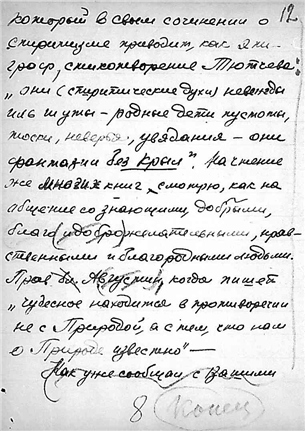 12
который в своем сочинении о
спиритизме приводит, как эпи-
граф, стихотворение Тютчева:
„они (спиритические духи) невежды
иль шуты – родные дети пустоты,
тоски, неверья, увядания – они
фантазии без крыл". На чтение
же многих книг смотрю, как на
общение со знающими, добрыми,
благ(и доброжелательными, нрав-
ственными и благородными людьми.
Прав бл. Августин, когда пишет
„чудесное находится в противоречии
не с Природой, а с тем, что нам
о Природе известно" –
Как уже сообщал с Вашими
8 Конец